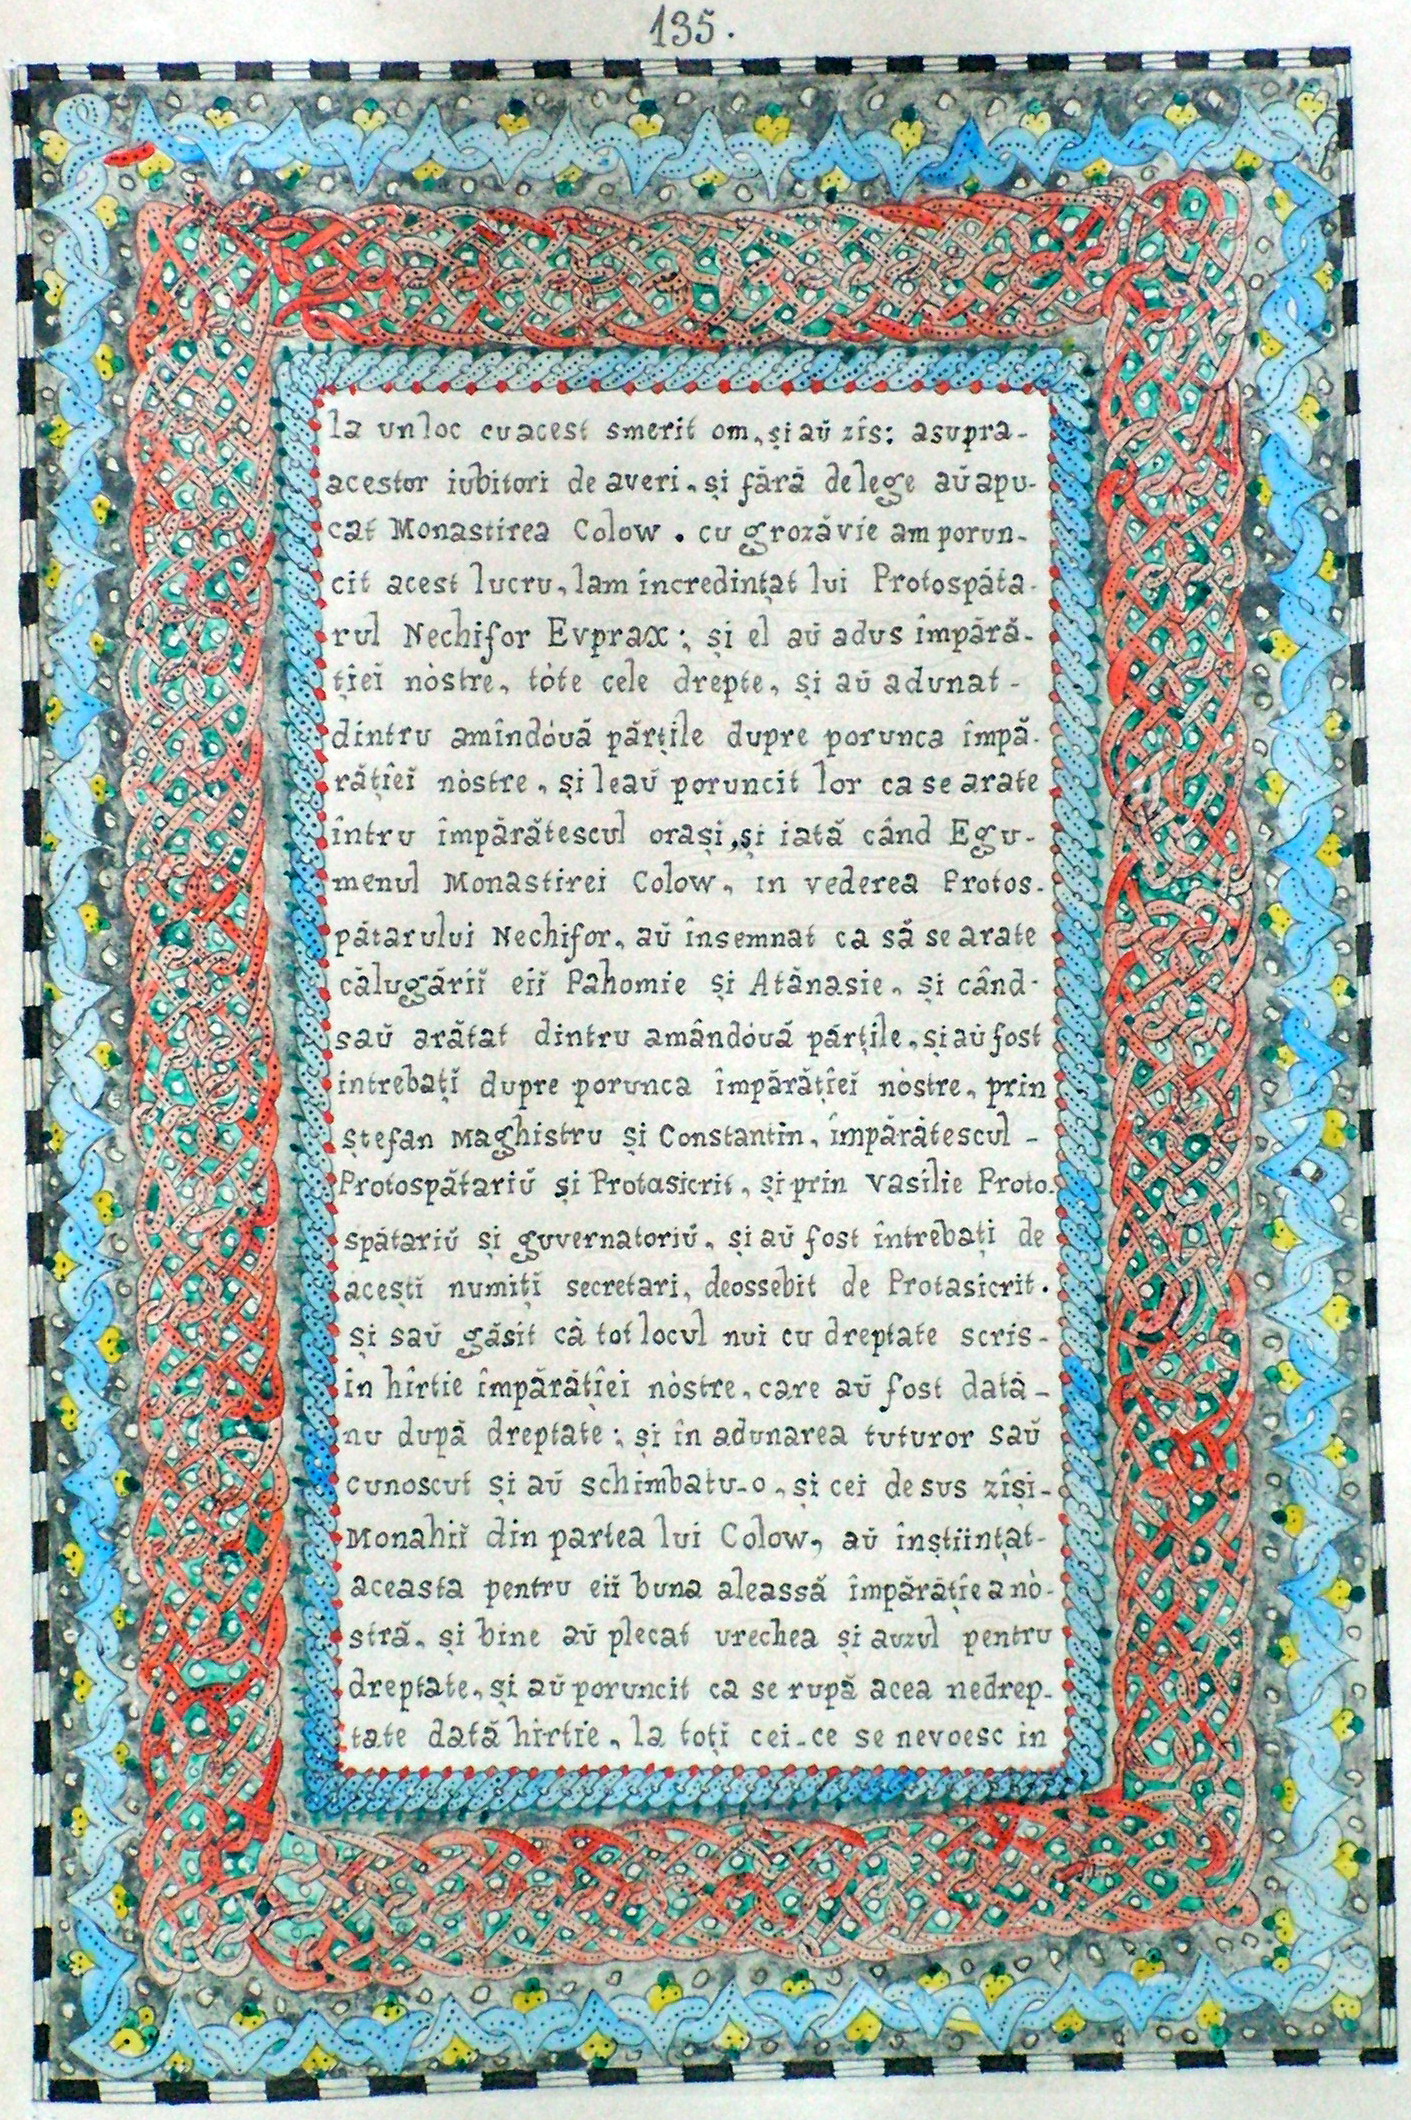 135.
la un loc cu acest smerit om, și aŭ zis: asupra-
acestor iubitori de averi, și fără de lege aŭ apu-
cat Monastirea Colow. cu grozăvie am porun-
cit acest lucru, lam încredințat lui Protospăta-
rul Nechifor Evprax; și el aŭ adus împără-
țieĭ nòstre, tòte cele drepte, și aŭ adunat-
dintru amîndòuă părțile dupre porunca împă-
rățîeĭ nòstre, și leaŭ poruncit lor ca se arate
întru împărătescul orași, și iată când Egu-
menul Monastirei Colow, in vederea Protos-
pătarului Nechifor, aŭ însemnat ca să se arate
călugăriĭ eiĭ Pahomie și Atănasie, și când-
saŭ arătat dintru amândòuă părțile, și aŭ fost
intrebațĭ dupre porunca împărățîeĭ nòstre, prin
Ștefan Maghistru și Constantin, împărătescul -
Protospătariŭ și Protasicrit, și prin Vasilie Proto-
spătariŭ si guvernatoriŭ, și aŭ fost întrebați de
aceștĭ numițĭ secretari, deossebit de Protasicrit.
și saŭ găsit că tot locul nui cu dreptate scris-
în hîrtie împărățîei nòstre, care aŭ fost dată-
nu după dreptate; și în adunarea tuturor saŭ
cunoscut și aŭ schimbatu-o, și cei de sus zîși-
Monahiĭ din partea lui Colow, aŭ înștiințat-
aceasta pentru eiĭ buna aleassă împărățîe a nò-
stră, și bine aŭ plecat urechea și auzul pentru
dreptate, și aŭ poruncit ca se rupă acea nedrep-
tate dată hîrtie, la toțĭ cei-ce se nevoesc in